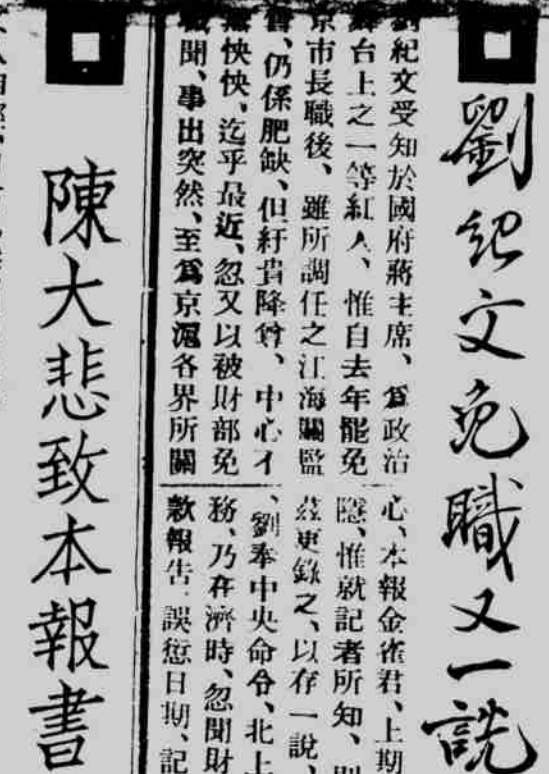 劉紀文免職又一説
劉紀文受知於國府蔣主席、爲政治
舞台上之一等紅人、惟自去年罷免
京市長職後、雖所調任之江海關監
督、仍係肥缺、但紆貴降尊、中心不
無怏怏、迄乎最近、忽又以被財部免
職聞、事出突然、至爲京滬各界所關
心、本報金雀君、上期
隱、惟就記者所知、則
茲更錄之、以存一說、
、劉奉中央命令、北上
務、乃在濟時、忽聞財
款報告、誤愆日期、記
陳大悲致本報書